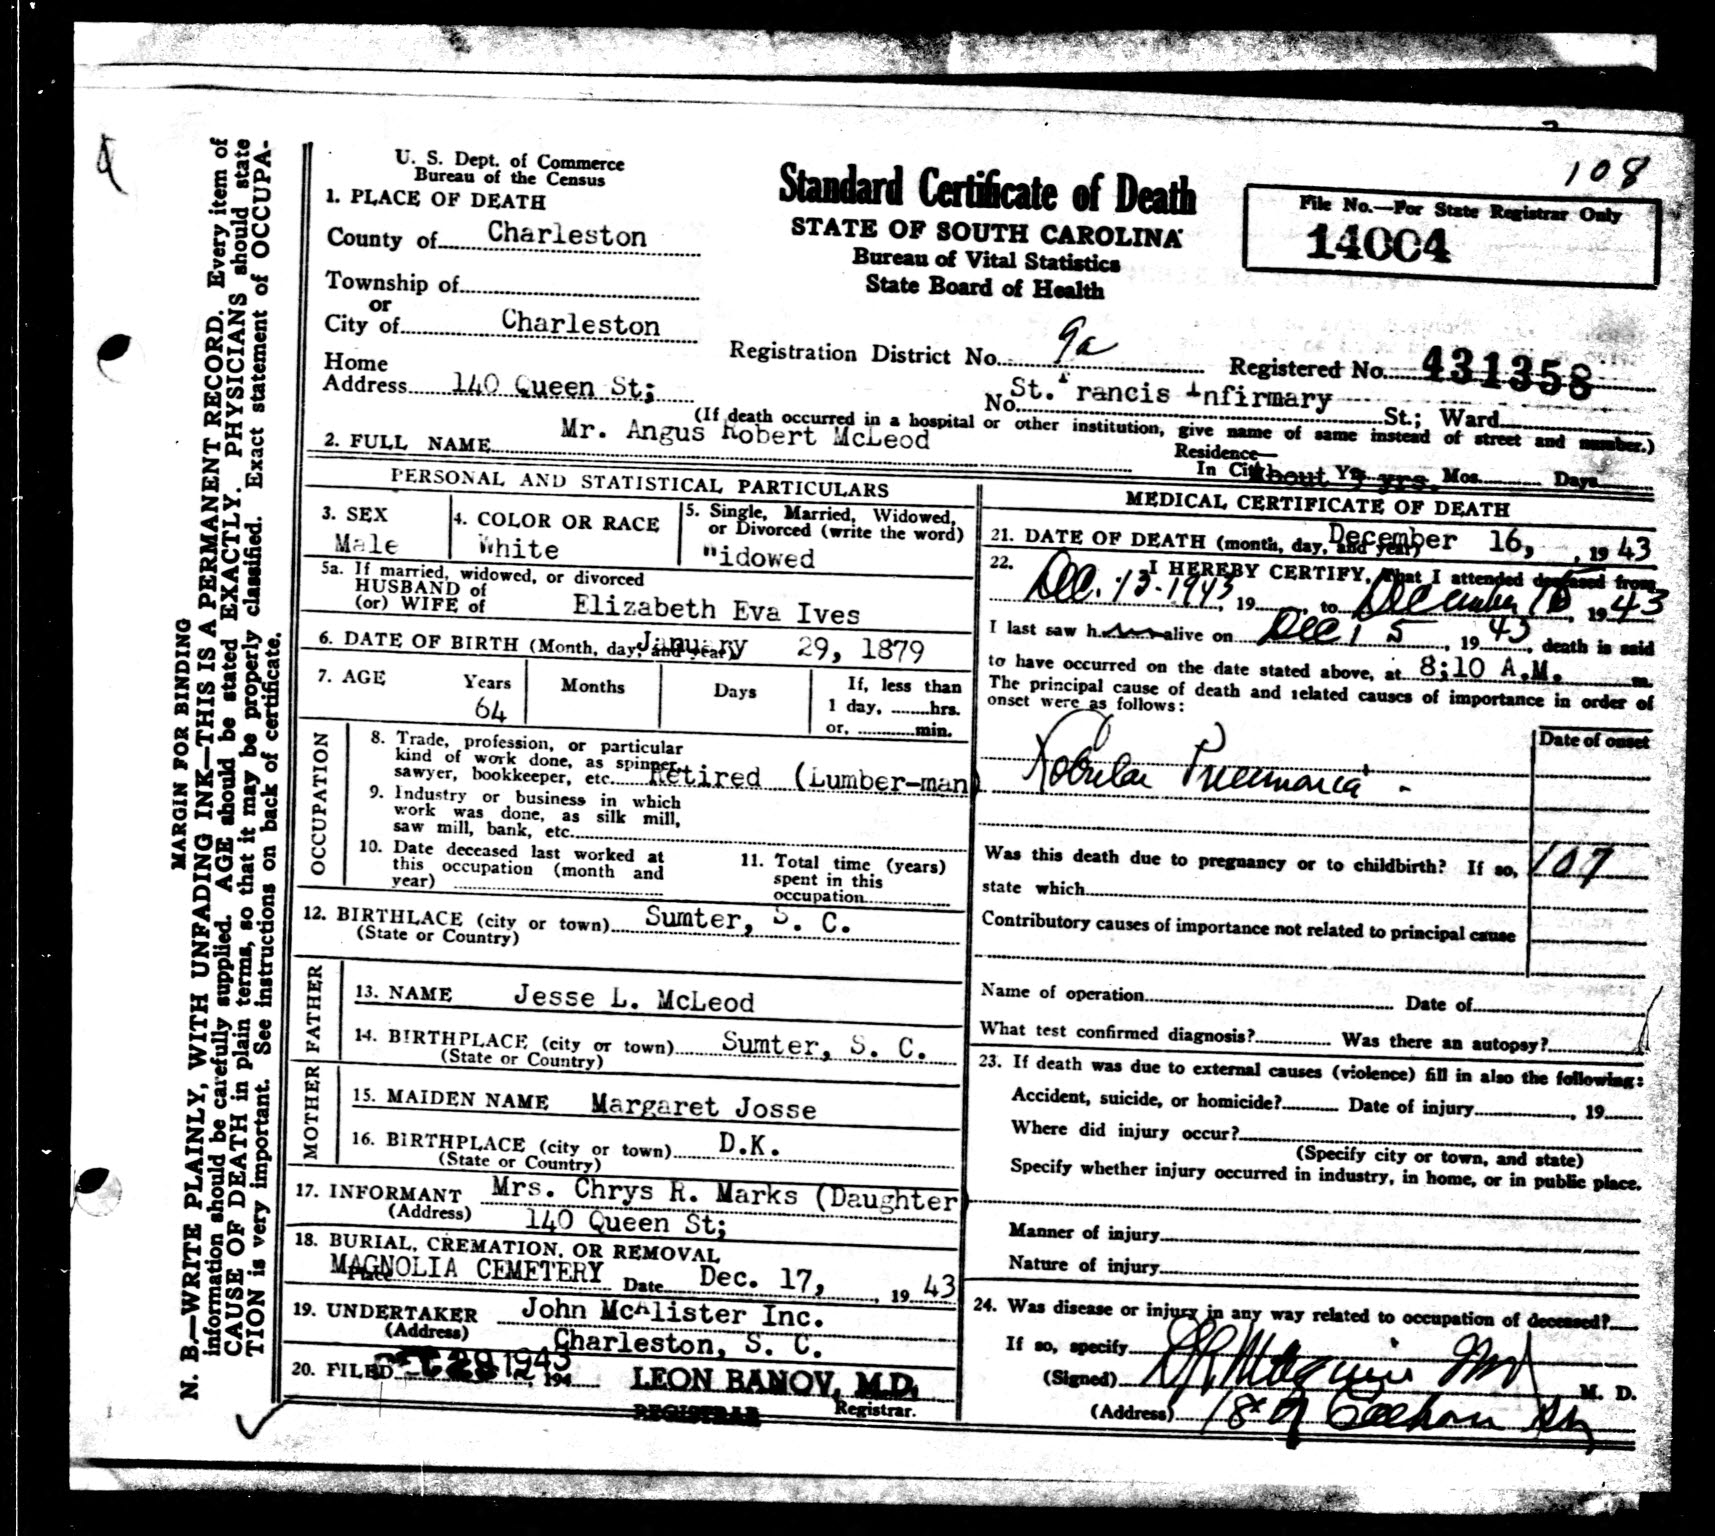 108
U. S. Dept. of Commerce
Bureau of the Census
Standard Certificate of Death
STATE OF SOUTH CAROLINA
Bureau of Vital Statistics
State Board of Health
File No.—For State Registrar Only
14004
1. PLACE OF DEATH
County of Charleston
Township of
or
City of Charleston
Registration District No. 9a
Registered No. 431358
Home
Address 140 Queen St;
No. St. Francis Infirmary St.; Ward
(If death occurred in a hospital or other institution, give name of same instead of street and number.)
2. FULL NAME Mr. Angus Robert McLeod
Residence—
In City About yrs. Mos. Days
PERSONAL AND STATISTICAL PARTICULARS
3. SEX
Male
4. COLOR OR RACE
White
5. Single, Married, Widowed,
or Divorced (write the word)
"idowed
5a. If married, widowed, or divorced
HUSBAND of
(or) WIFE of Elizabeth Eva Ives
6. DATE OF BIRTH (Month, day, and year) January 29, 1879
7. AGE
Years
64
Months
Days
If, less than
1 day, hrs.
or, min.
OCCUPATION
8. Trade, profession, or particular
kind of work done, as spinner,
sawyer, bookkeeper, etc. Retired (Lumber-man)
9. Industry or business in which
work was done, as silk mill,
saw mill, bank, etc.
10. Date deceased last worked at
this occupation (month and
year)
11. Total time (years)
spent in this
occupation
12. BIRTHLACE (city or town) Sumter, S. C.
(State or Country)
FATHER
13. NAME Jesse L. McLeod
14. BIRTHPLACE (city or town) Sumter, S. C.
(State or Country)
MOTHER
15. MAIDEN NAME Margaret Josse
16. BIRTHPLACE (city or town) D.K.
(State or Country)
17. INFORMANT Mrs. Chrys R. Marks (Daughter)
(Address) 140 Queen St;
18. BURIAL, CREMATION, OR REMOVAL
Place MAGNOLIA CEMETERY Date Dec. 17, 1943
19. UNDERTAKER John McAlister Inc.
(Address) Charleston, S. C.
20. FILED 1943, 194 LEON BANOV, M.D.
REGISTRAR Registrar.
MEDICAL CERTIFICATE OF DEATH
21. DATE OF DEATH (month, day, and year) December 16, , 1943
22. I HEREBY CERTIFY, That I attended deceased from
Dec. 13-1943, 19 , to December , 1943
I last saw h alive on Dec 15, 1943, death is said
to have occurred on the date stated above, at 8;10 A.M. m.
The principal cause of death and related causes of importance in order of
onset were as follows:
Date of onset
Lobular Pneumonia -
Was this death due to pregnancy or to childbirth? If so, 107
state which
Contributory causes of importance not related to principal cause
Name of operation Date of
What test confirmed diagnosis? Was there an autopsy?
23. If death was due to external causes (violence) fill in also the following:
Accident, suicide, or homicide? Date of injury , 19
Where did injury occur?
(Specify city or town, and state)
Specify whether injury occurred in industry, in home, or in public place.
Manner of injury
Nature of injury
24. Was disease or injury in any way related to occupation of deceased?
If so, specify
(Signed) M. D.
(Address) Calhoun
MARGIN FOR BINDING
N. B.—WRITE PLAINLY, WITH UNFADING INK—THIS IS A PERMANENT RECORD. Every item of
information should be carefully supplied. AGE should be stated EXACTLY. PHYSICIANS should state
CAUSE OF DEATH in plain terms, so that it may be properly classified. Exact statement of OCCUPA-
TION is very important. See instructions on back of certificate.